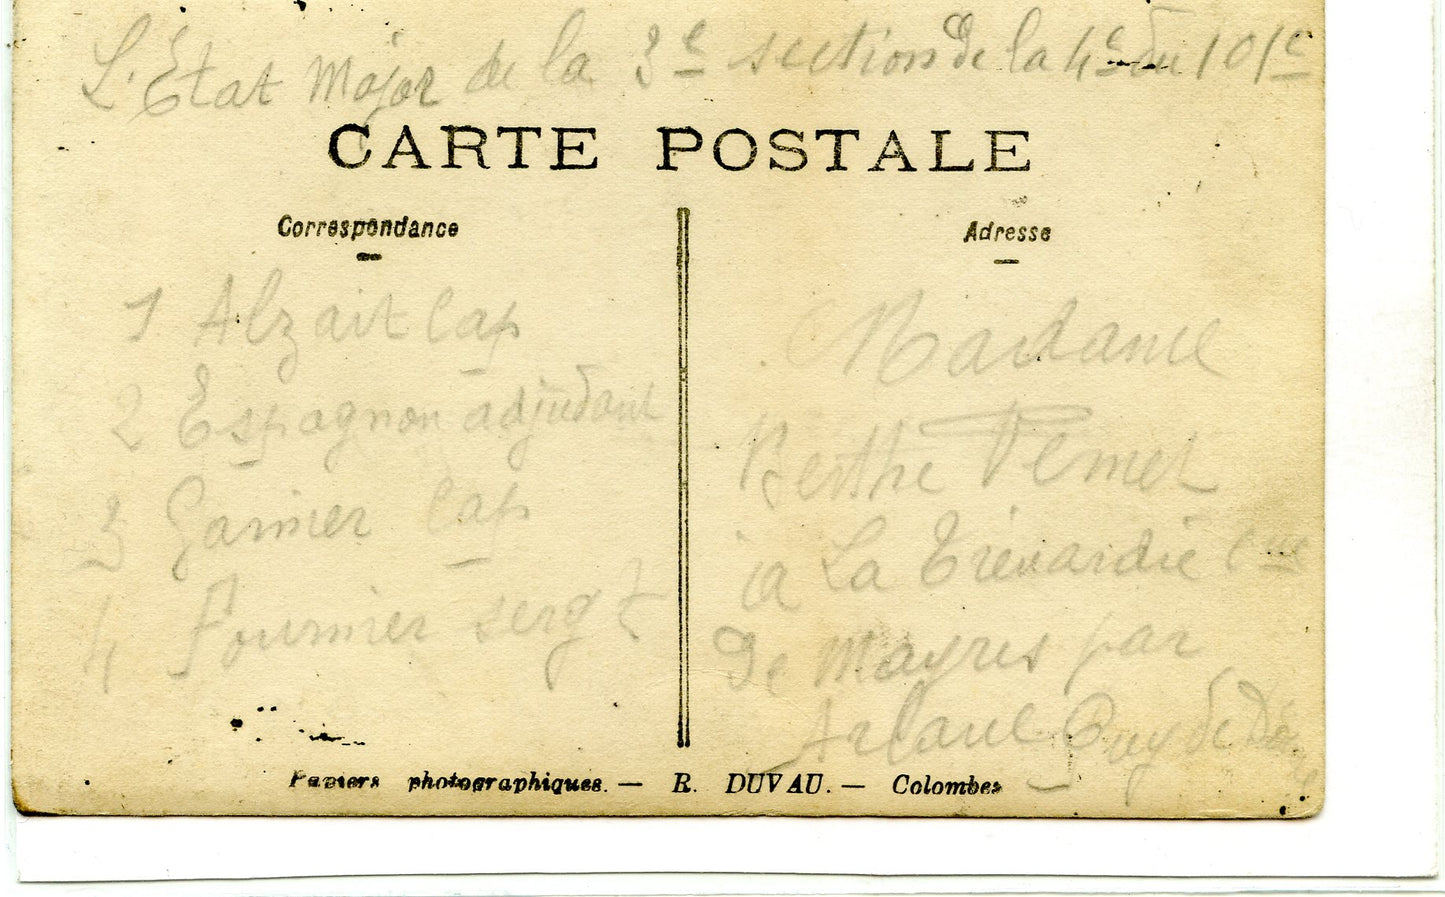 L'État Major de la 3e section de la 4e du 101e
CARTE POSTALE
Correspondance
Adresse
1 Alzait Cap
2 Espagnon adjudant
3 Garnier Cap
4 Fournier serg t
Madame
Berthe Vernet
à La Trévardie Cne
de Mayres par
Arlanc Puy de Dôme
Papiers photographiques. — R. DUVAU. — Colombes